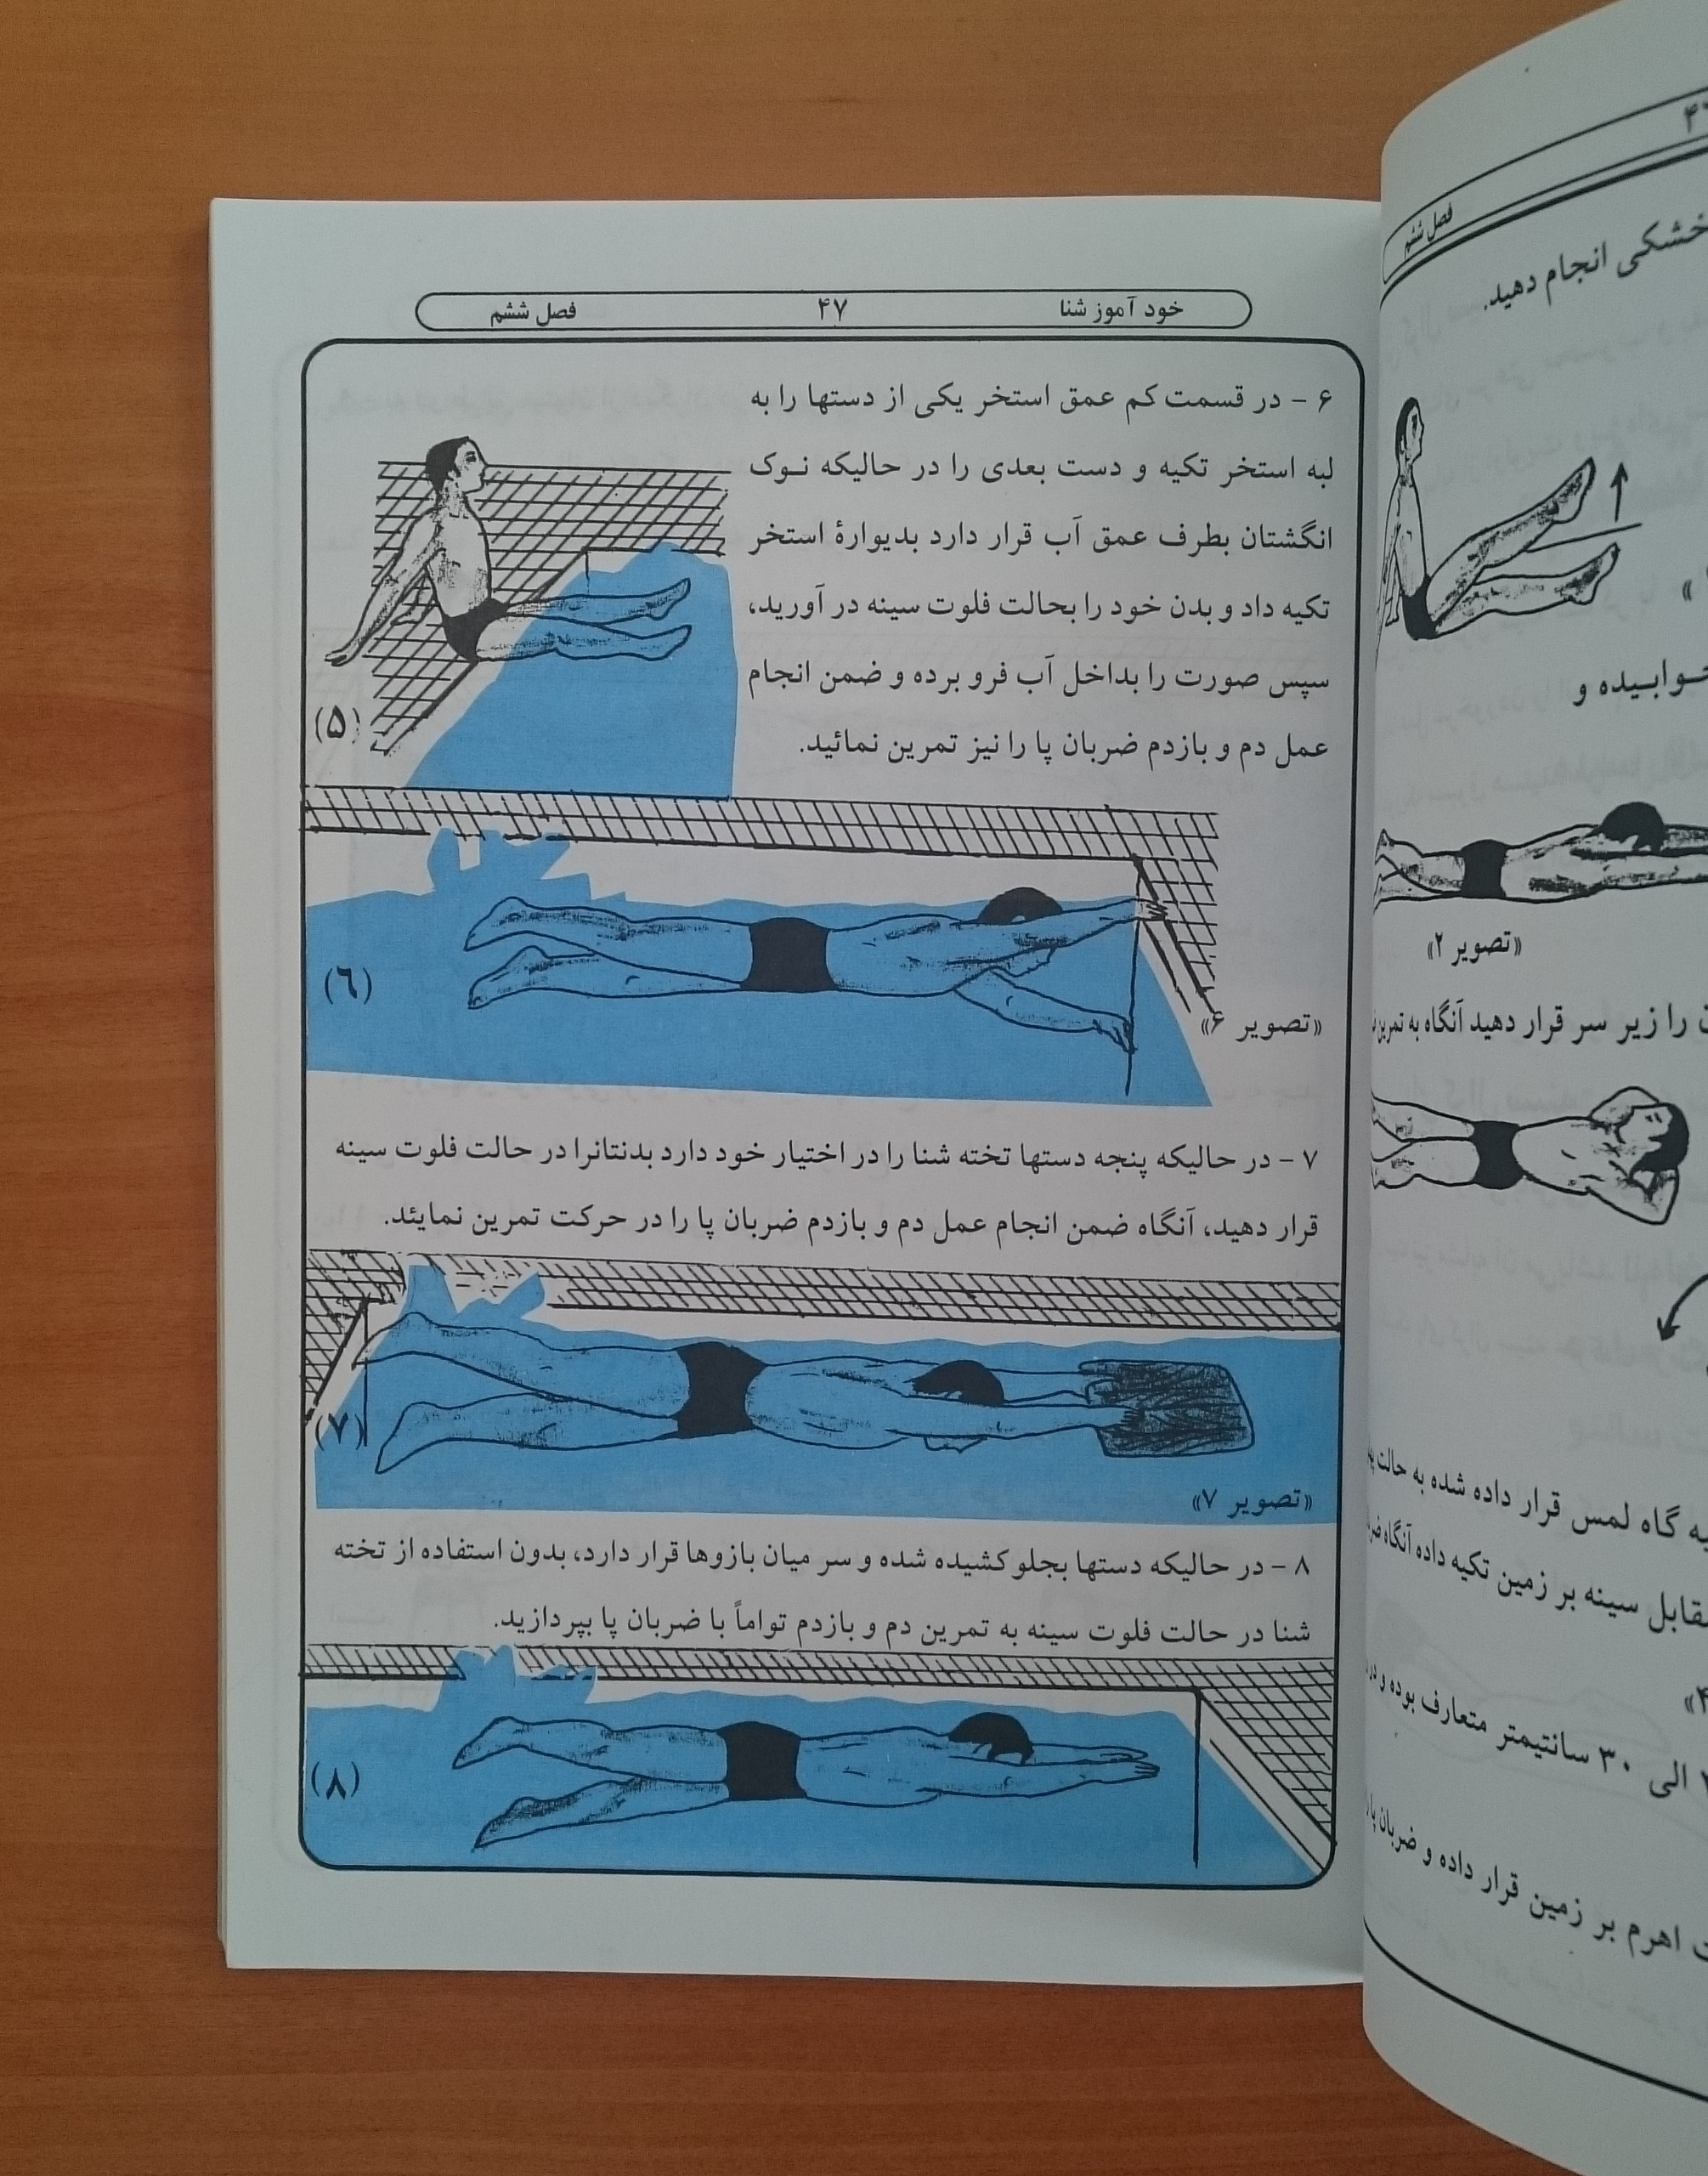 خود آموز شنا ۴۷ فصل ششم
۶ - در قسمت کم عمق استخر یکی از دستها را به
لبه استخر تکیه و دست بعدی را در حالیکه نـوک
انگشتان بطرف عمق آب قرار دارد بدیوارهٔ استخر
تکیه داد و بدن خود را بحالت فلوت سینه در آورید،
سپس صورت را بداخل آب فرو برده و ضمن انجام
عمل دم و بازدم ضربان پا را نیز تمرین نمائید.
(۵)
(۶)
«تصویر ۶»
۷ - در حالیکه پنجه دستها تخته شنا را در اختیار خود دارد بدنتانرا در حالت فلوت سینه
قرار دهید، آنگاه ضمن انجام عمل دم و بازدم ضربان پا را در حرکت تمرین نمایئد.
(۷)
«تصویر ۷»
۸ - در حالیکه دستها بجلو کشیده شده و سر میان بازوها قرار دارد، بدون استفاده از تخته
شنا در حالت فلوت سینه به تمرین دم و بازدم تواماً با ضربان پا بپردازید.
(۸)
فصل ششم
خشکی انجام دهید.
خـوابـیده و
«تصویر ۲»
را زیر سر قرار دهید آنگاه به تمرین
گاه لمس قرار داده شده به حالت
مقابل سینه بر زمین تکیه داده آنگاه
۴»
الی ۳۰ سانتیمتر متعارف بوده و در
اهرم بر زمین قرار داده و ضربان پا